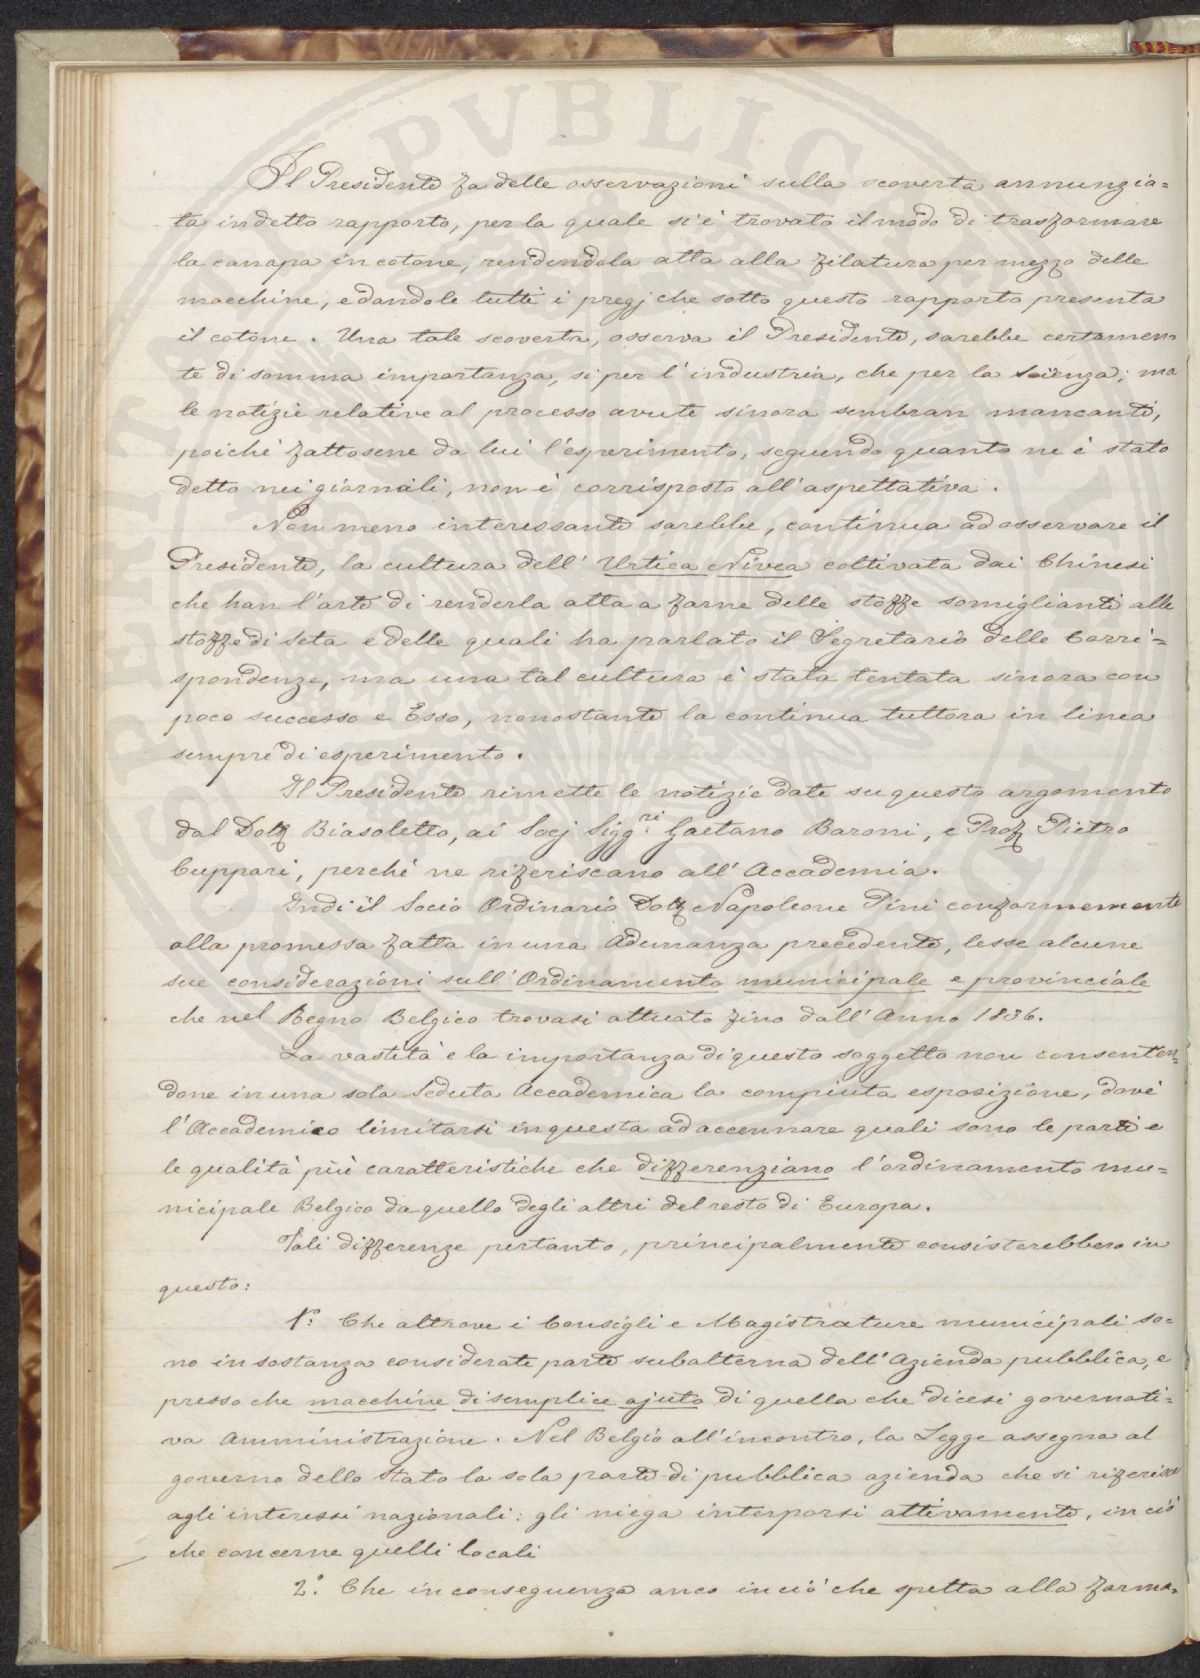 Il Presidente fa delle osservazioni sulla scoverta annunzia=
ta in detto rapporto, per la quale si è trovato il modo di trasformare
la canapa in cotone, rendendola atta alla filatura per mezzo delle
macchine, e dandole tutti i pregj che sotto questo rapporto presenta
il cotone. Una tale scoverta, osserva il Presidente, sarebbe certamen=
te di somma importanza, si per l'industria, che per la scienza; ma
le notizie relative al processo avute sinora sembran mancanti,
poichè fattosene da lui l'esperimento, seguendo quanto ne è stato
detto nei giornali, non è corrisposto all'aspettativa.
Non meno interessante sarebbe, continua ad osservare il
Presidente, la cultura dell'Urtica Nivea coltivata dai Chinesi
che han l'arte di renderla atta a farne delle stoffe somiglianti alle
stoffe di seta e delle quali ha parlato il Segretario delle Corri=
spondenze, ma una tal cultura è stata tentata sinora con
poco successo e Esso, nonostante la continua tuttora in linea
sempre di esperimento.
Il Presidente rimette le notizie date su questo argomento
dal Dott Biasoletto, ai Socj Sigg.ri Gaetano Baroni, e Prof Pietro
Cuppari, perchè ne riferiscano all'Accademia.
Indi il Socio Ordinario Dott Napoleone Pini conformemente
alla promessa fatta in una Adunanza precedente, lesse alcune
sue considerazioni sull'Ordinamento municipale e provinciale
che nel Regno Belgico trovasi attuato fino dall'Anno 1836.
La vastità e la importanza di questo soggetto non consenten=
done in una sola Seduta Accademica la compiuta esposizione, dovè
l'Accademico limitarsi in questa ad accennare quali sono le parti e
le qualità più caratteristiche che differenziano l'ordinamento mu=
nicipale Belgico da quello degli altri del resto di Europa.
Tali differenze pertanto, principalmente consisterebbero in
questo:
1.o Che altrove i Consigli e Magistrature municipali so=
no in sostanza considerate parte subalterna dell'Azienda pubblica, e
presso che macchine di semplice ajuto di quella che dicesi governati=
va Amministrazione. Nel Belgio all'incontro, la Legge assegna al
governo dello Stato la sola parte di pubblica azienda che si riferisce
agli interessi nazionali: gli niega interporsi attivamente, in ciò
che concerne quelli locali
2.o Che in conseguenza anco in ciò che spetta alla forma=
PVBLIC